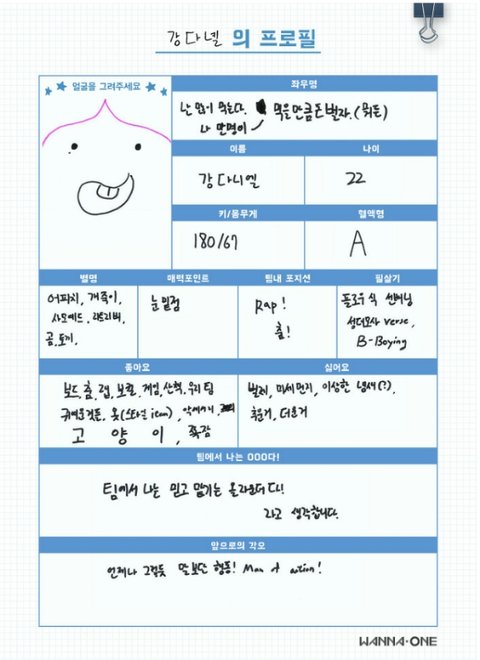 강다넬 의 프로필
얼굴을 그려주세요
좌우명
난 많이 먹는다. 먹은만큼 돈벌자. (뭐든)
나 만명이
이름
나이
강다니엘
22
키/몸무게
혈액형
180/67
A
별명
매력포인트
팀내 포지션
필살기
어피치, 개죽이,
사모예드,
곰, 토끼.
눈밑점
Rap!
춤!
플로우식 선배님
성대모사 verse,
B-Boying
좋아요
싫어요
보드, 춤, 랩, 보컬, 게임, 산책, 우리 팀
귀여운것들, 옷(스타일 item),
고양이,
벌레, 미세먼지, 이상한 냄새(?),
추운거, 더운거
팀에서 나는 OOO다!
팀에서 나는 믿고 맡기는 올라운더다!
라고 생각합니다.
앞으로의 각오
언제나 그럼듯 말보단 행동! Man of action!
WANNA·ONE